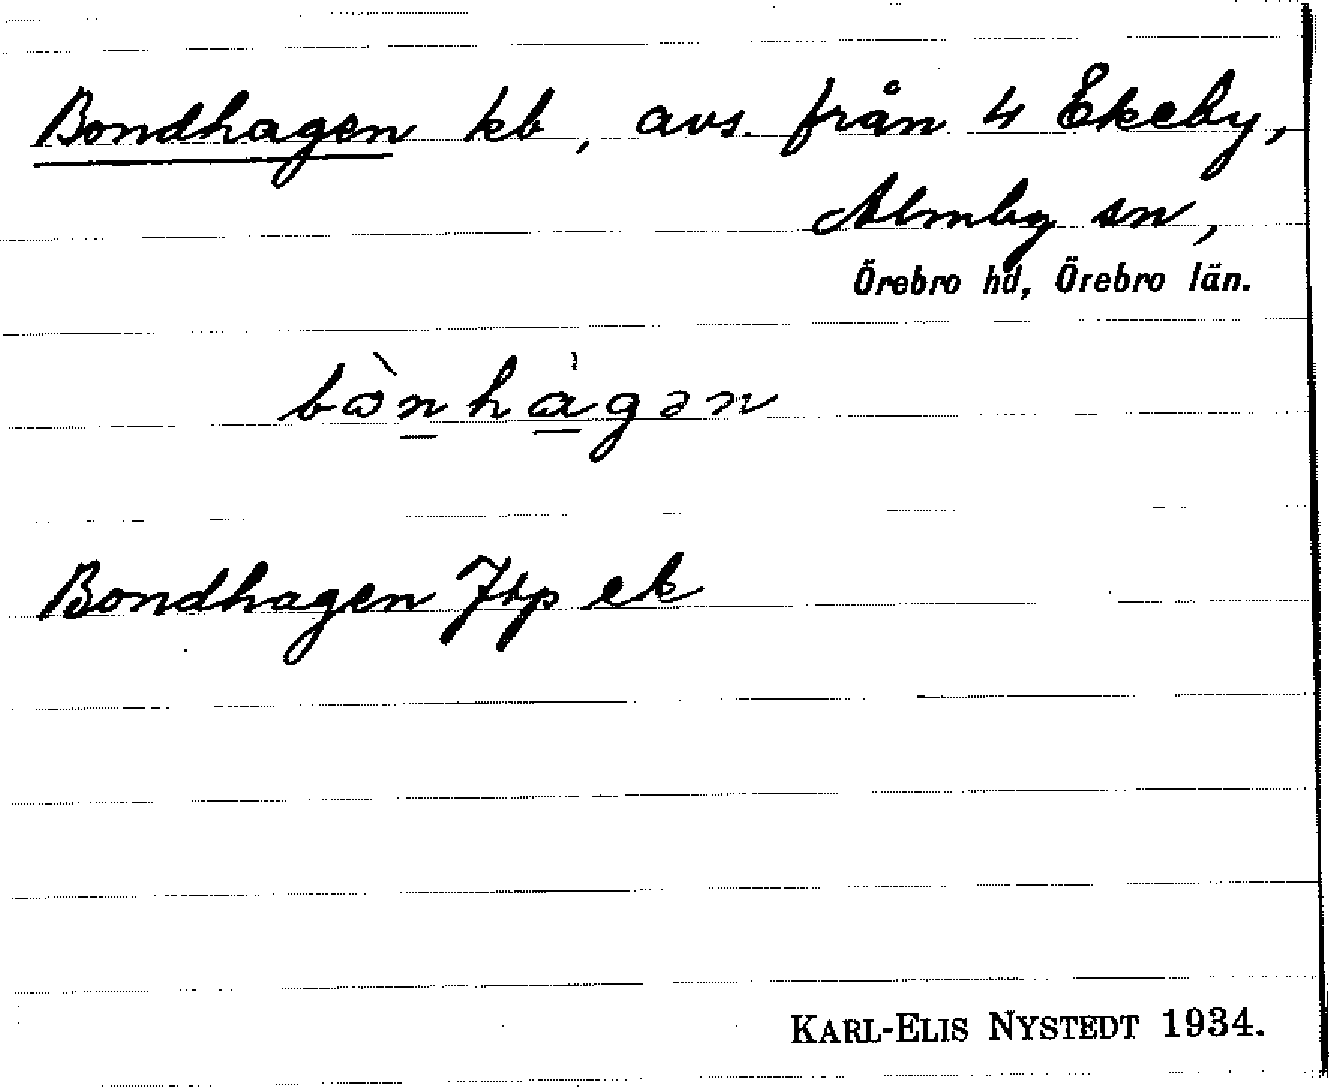 Bondhagen kb, avs. från 4 Ekeby,
Almby sn,
Örebro hd, Örebro län.
bɷ̀nhágən
Bondhagen Jbp ek
KARL-ELIS NYSTEDT 1934.